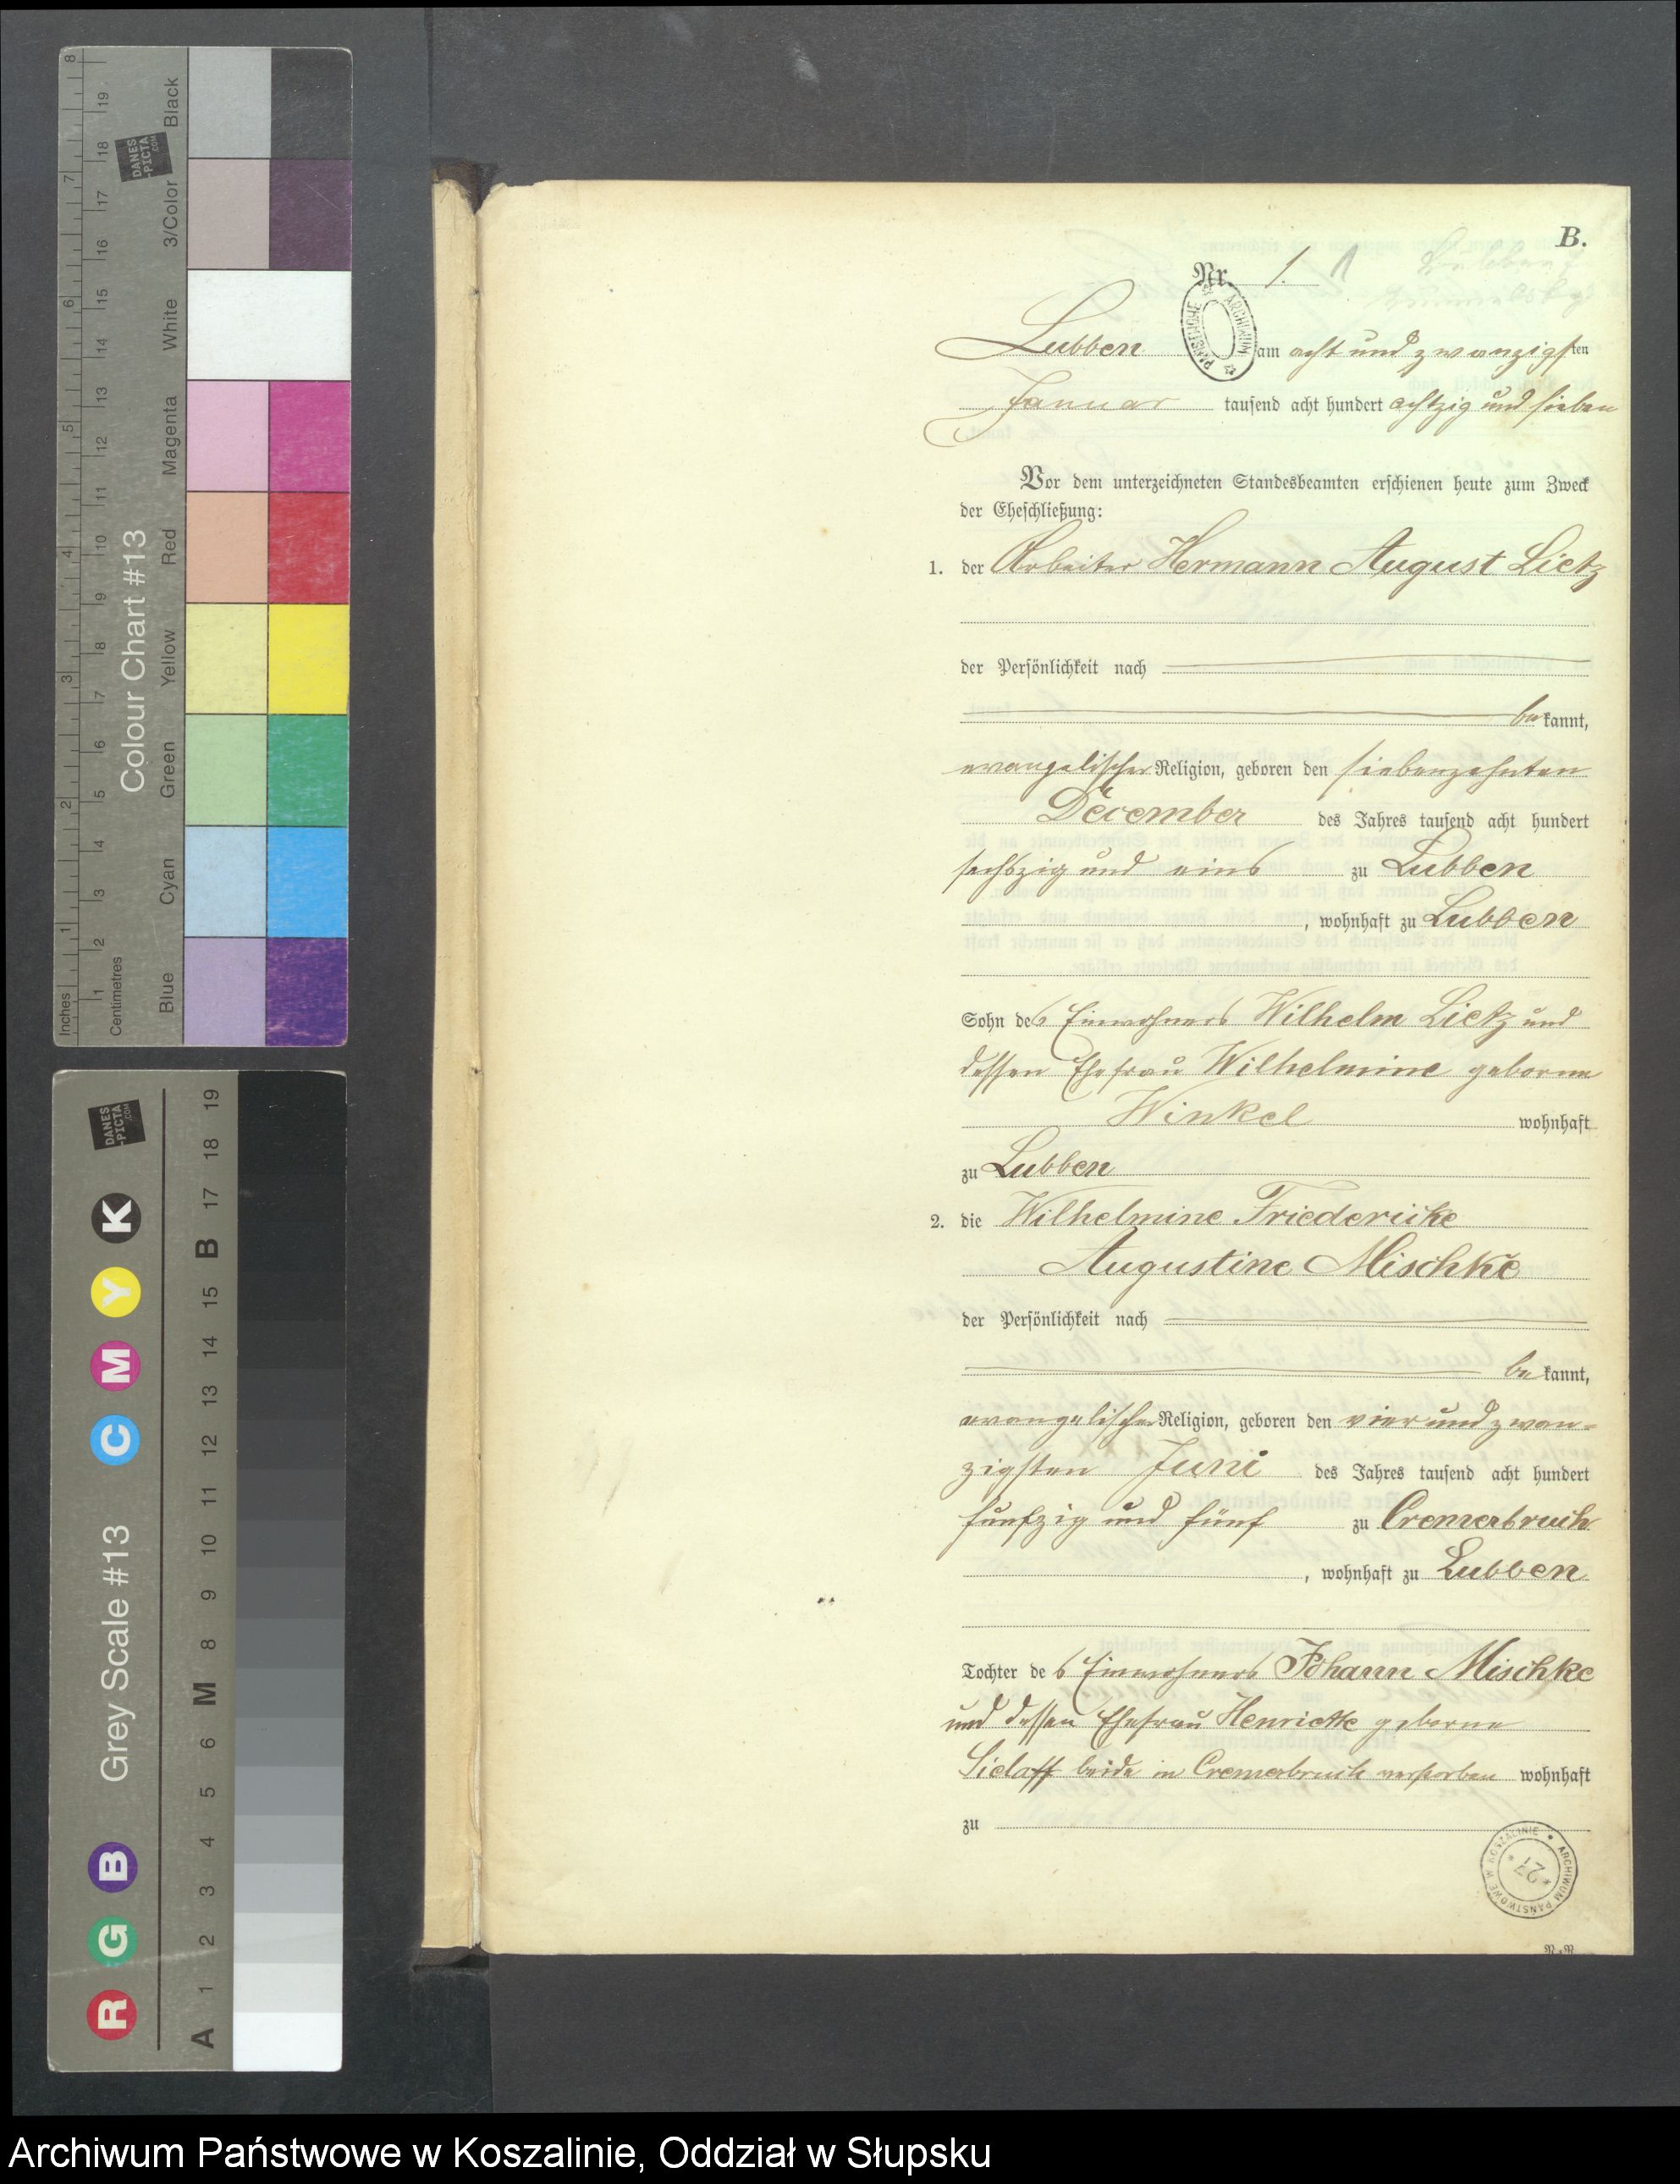 B.
Nr. 1. 1
Lubben am acht und zwanzigsten
Januar tausend acht hundert achtzig und sieben
Vor dem unterzeichneten Standesbeamten erschienen heute zum Zweck
der Eheschließung:
1. der Arbeiter Hermann August Lietz
der Persönlichkeit nach
be kannt,
evangelischer Religion, geboren den siebenzehnten
December des Jahres tausend acht hundert
sechszig und eins zu Lubben
, wohnhaft zu Lubben
Sohn des Einwohners Wilhelm Lietz und
dessen Ehefrau Wilhelmine geborne
Winkel wohnhaft
zu Lubben
2. die Wilhelmine Friedericke
Augustine Mischke
der Persönlichkeit nach
be kannt,
evangelischer Religion, geboren den vier und zwan-
zigsten Juni des Jahres tausend acht hundert
funfzig und fünf zu Cremerbruch
, wohnhaft zu Lubben
Tochter des Einwohners Johann Mischke
und dessen Ehefrau Henriette geborne
Sielaff beide in Cremerbruch verstorben wohnhaft
zu
ARCHIWUM PAŃSTWOWE
ARCHIWUM PAŃSTWOWE W KOSZALINIE
* 27 *
Inches 1 2 3 4 5 6 7 8
Centimetres 1 2 3 4 5 6 7 8 9 10 11 12 13 14 15 16 17 18 19
Colour Chart #13
Blue Cyan Green Yellow Red Magenta White 3/Color Black
DANES
-PICTA
.COM
Grey Scale #13
R G B C M Y K
DANES
-PICTA
.COM
A 1 2 3 4 5 6 M 8 9 10 11 12 13 14 15 B 17 18 19
Archiwum Państwowe w Koszalinie, Oddział w Słupsku